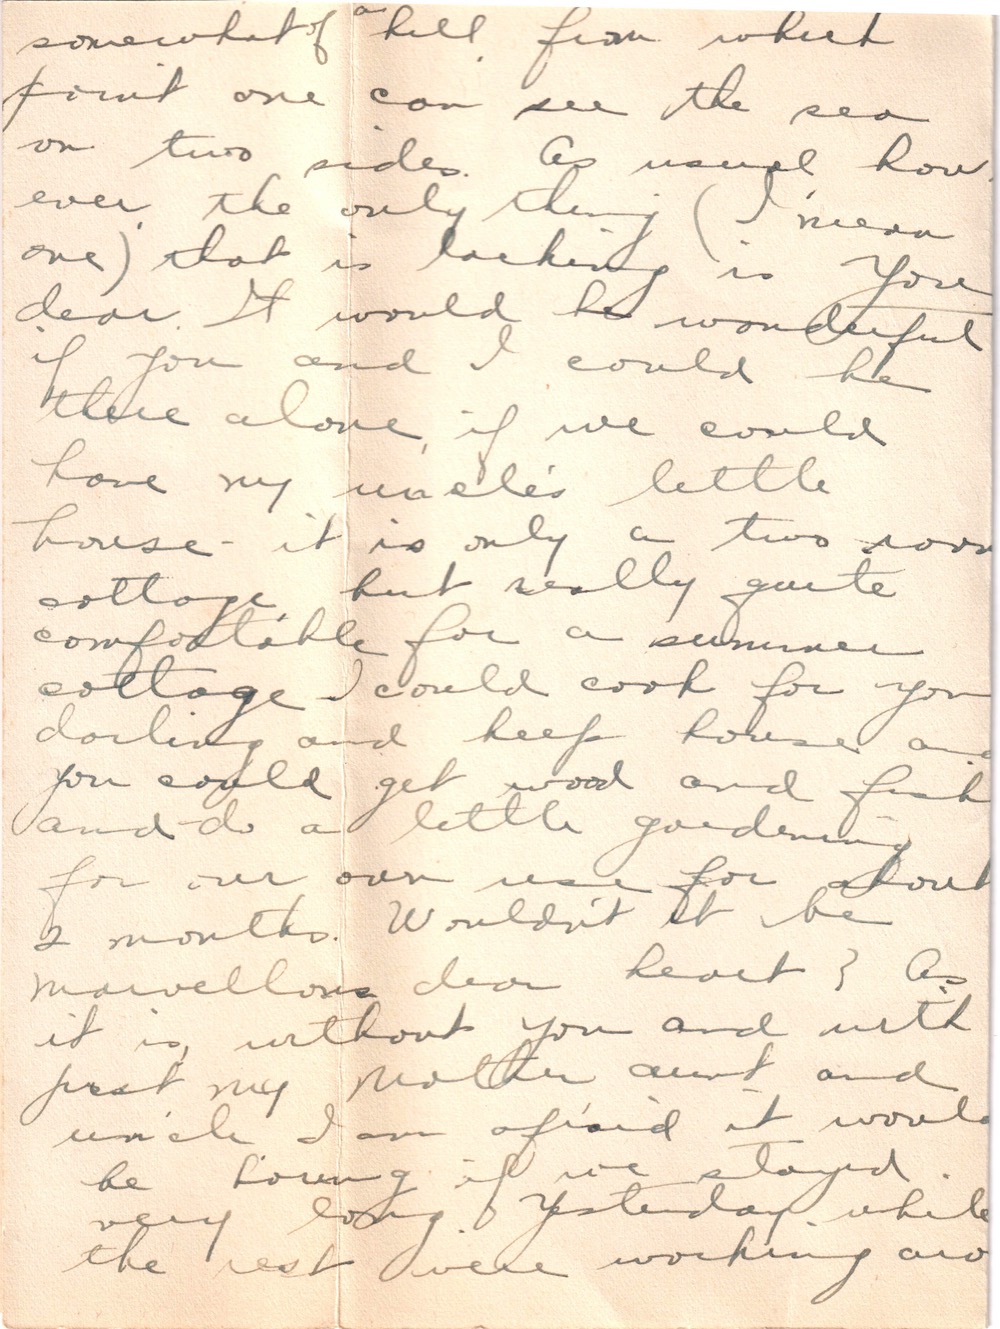 somewhat of a hill from which
point one can see the sea
on two sides. As usual how-
ever, the only thing (I mean
one) that is lacking is You
dear. It would be wonderful
if you and I could be
there alone, if we could
have my uncle's little
house - it is only a two room
cottage, but really quite
comfortable for a summer
cottage I could cook for you
darling and keep house and
you could get wood and fish
and do a little gardening
for our own use for about
2 months. Wouldn't it be
marvellous dear heart? As
it is, without you and with
just my Mother aunt and
uncle I am afraid it would
be boring if we stayed
very long. Yesterday while
the rest were working aro